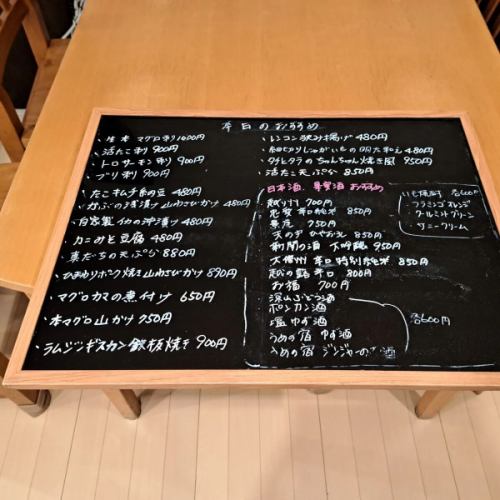 本日のおすすめ
・生本マグロ刺 1400円
・活たこ刺 900円
・トロサーモン刺 900円
・ブリ刺 900円
・たこキムチ納豆 480円
・かぶの浅漬け山わさびかけ 480円
・自家製イカの沖漬け 480円
・カニのせ豆腐 480円
・真だちの天ぷら 880円
・ひまわりホッケ焼き山わさびかけ 890円
・マグロカマの煮付け 650円
・本マグロ山かけ 750円
・ラムジンギスカン鉄板焼き 900円
・レンコン挟み揚げ 480円
・細切りじゃがいもの明太和え 480円
・ちゃんちゃん焼き風 950円
・活たこ天ぷら 850円
日本酒、果実酒 おすすめ
越の州 700円
辛口純米 850円
700円
ひやおろし 850円
大吟醸 950円
大信州 辛口特別純米 850円
辛口 800円
お福 700円
深山ぶどう酒
ポンカン酒
塩ゆず酒
うめの宿 ゆず酒
うめの宿 ジンジャーの酒
各600円
いも焼酎 各600円
フラミンゴオレンジ
クールミントグリーン
サニークリーム